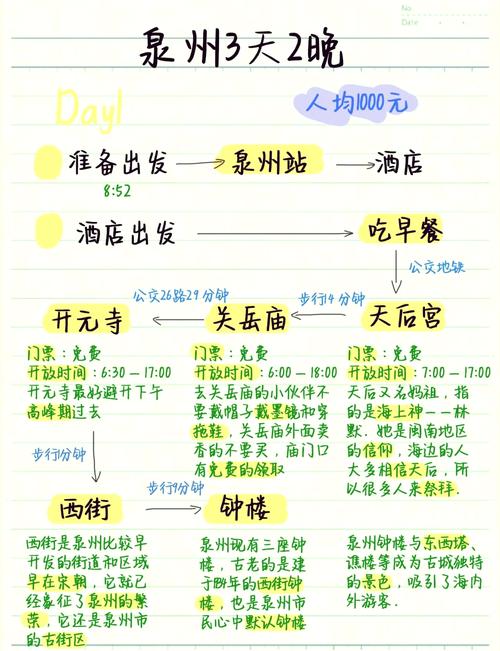 No
Date
泉州3天2晚
Day1
人均1000元
准备出发
泉州站
酒店
8:52
酒店出发
吃早餐
公交地铁
公交26路29分钟
步行14分钟
开元寺
关岳庙
天后宫
门票：免费
开放时间：6:30-17:00
开元寺最好避开下午
高峰期过去
门票：免费
开放时间：6:00-18:00
去关岳庙的小伙伴不
要戴帽子戴墨镜和穿
拖鞋，关岳庙外面卖
香的不要买，庙门口
有免费的领取
门票：免费
开放时间：7:00-17:00
天后又名妈祖，指
的是海上神——林
默．她是闽南地区
的信仰，海边的人
大多相信天后，所
以很多人来祭拜．
步行1分钟
步行9分钟
西街
钟楼
西街是泉州比较早
开发的街道和区域
早在宋朝，它就已
经象征了泉州的繁
荣，它还是泉州市
的古街区
泉州现有三座钟
楼，古老的是建
于1934年的西街钟
楼，也是泉州市
民心中默认钟楼
泉州钟楼与东西塔、
谯楼等成为古城独特
的景色，吸引了海内
外游客．